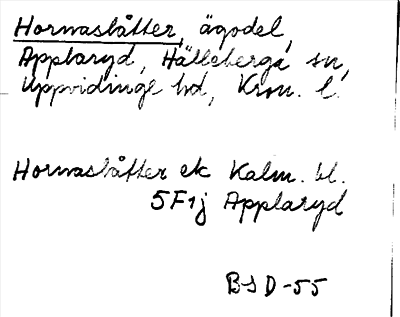 Hornaslåtter, ägodel,
Applaryd, Hälleberga sn,
Uppvidinge hd, Kron. l.
Hornaslåtter ek Kalm. bl.
5F1j Applaryd
BSD-55